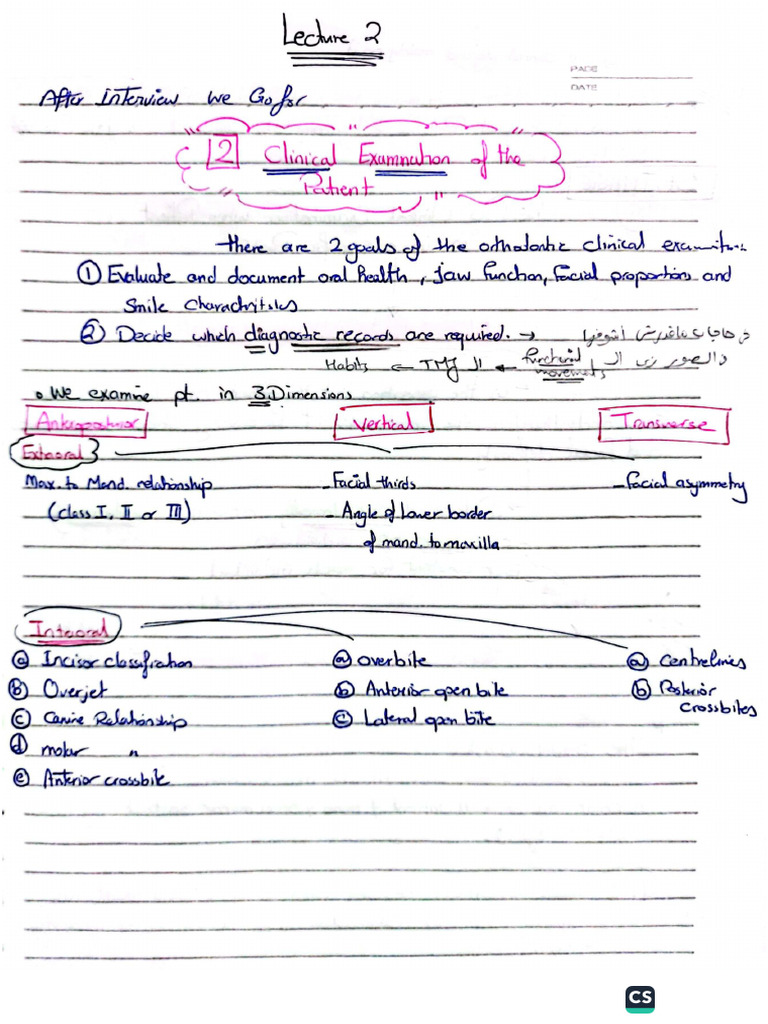 Lecture 2
PAGE
DATE
After Interview we Go for
2 Clinical Examnation of the
Patient
there are 2 goals of the orthodontic clinical
① Evaluate and document oral health, jaw function, facial proportions and
Smile
② Decide which diagnostic records are required. →
functional
movements
الـ TMJ ← Habits
• We examine pt. in 3 Dimensions
Anteroposterior Vertical Transverse
Extraoral
Max. to Mand. relationship - Facial thirds - Facial asymmetry
(class I, II or III) - Angle of Lower border
of mand. to maxilla
Intraoral
ⓐ Incisor classification ⓐ overbite ⓐ Centrelines
ⓑ Overjet ⓑ Anterior open bite ⓑ Posterior
crossbites
ⓒ Canine Relationship ⓒ Lateral open bite
ⓓ molar "
ⓔ Anterior crossbite
CS